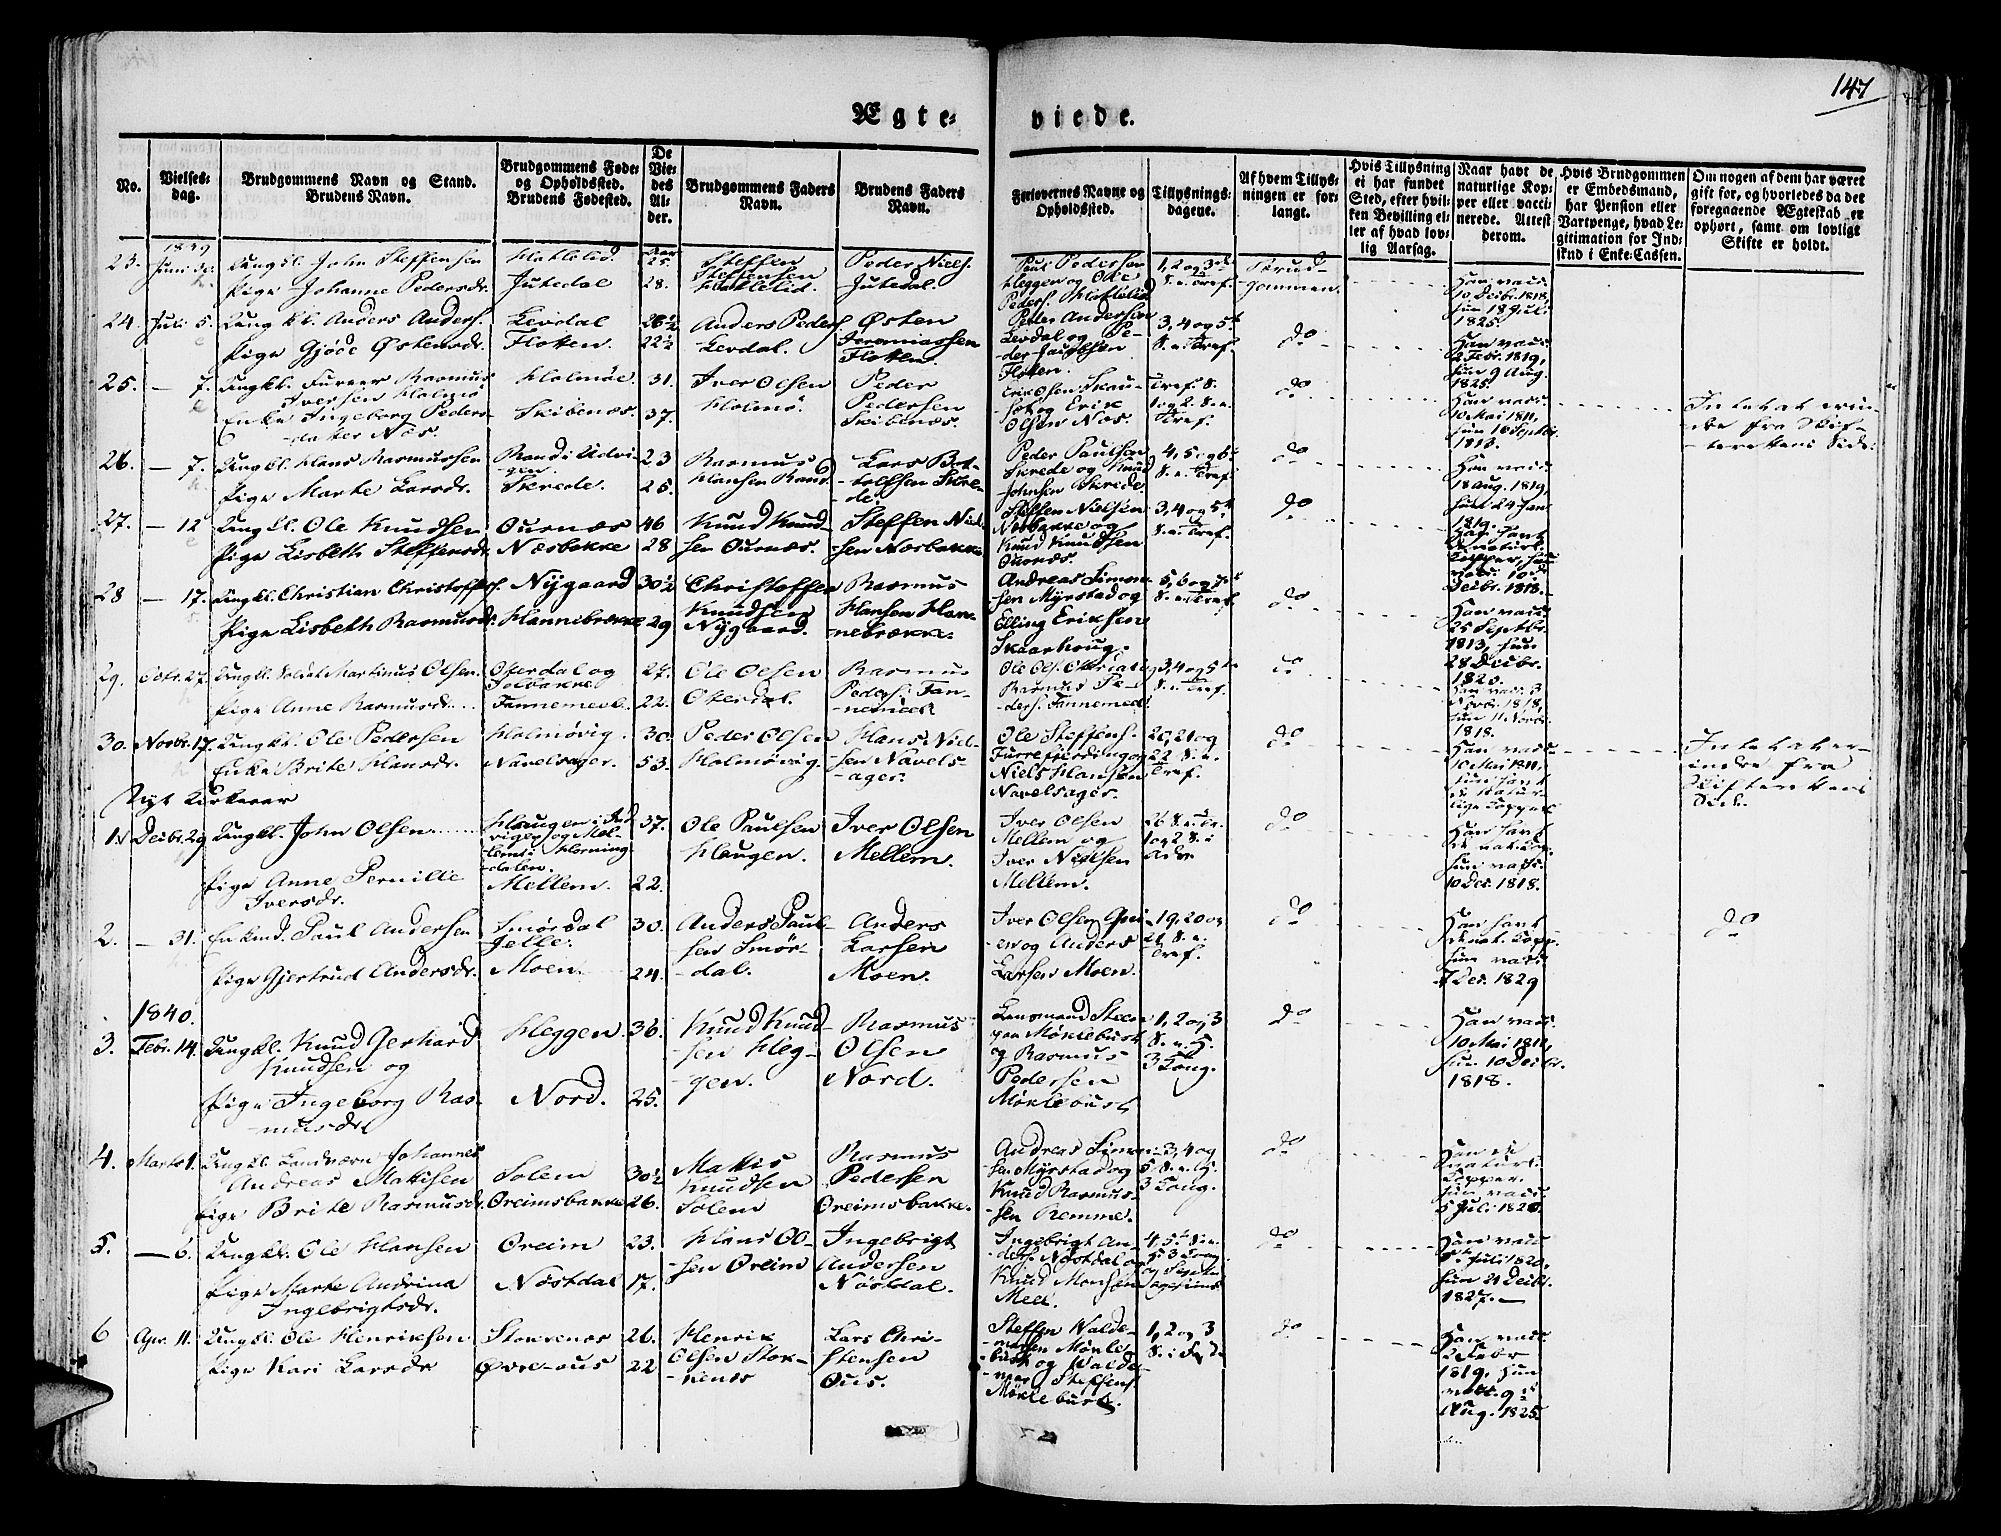 147
Ægte-
viede.
No.
Vielses-
dag.
Brudgommens Navn og Stand.
Brudens Navn.
Brudgommens Føde-
og Opholdssted.
Brudens Fødested.
De
Vie-
des
Al-
der.
Brudgommens Faders
Navn.
Brudens Faders
Navn.
Forlovernes Navne og
Opholdssted.
Tillysnings-
dagene.
Af hvem Tillys-
ningen er for-
langt.
Hvis Tillysning
ei har fundet
Sted, efter hvil-
ken Bevilling el-
ler af hvad lov-
lig Aarsag.
Naar havt de
naturlige Kop-
per eller vacci-
nerede. Attest
derom.
Hvis Brudgommen
er Embedsmand,
har Pension eller
Vartpenge, hvad Le-
gitimation for Ind-
skud i Enke-Cassen.
Om nogen af dem har været
gift før, og hvorledes da det
foregaaende Ægteskab er
ophørt, samt om lovligt
Skifte er holdt.
23.
1839
Juni
Ungkl. John Steffensen
Pige Johanne Pedersdr.
Jutedal
25.
28.
Steffen
Steffensen
Peder Niels.
Jutedal.
Paul Pedersen
Heggen og Ole
Peders.
1, 2 og 3de
S. e. Tref.
Brud-
gommen.
Han vacc.
10 Decbr. 1818,
hun 18 Juli
1825.
24.
Juli 5.
Ungkl. Anders Anders.
Pige Gjøde Østensdr.
Levdal
Flotten
26½
22½
Anders Peders.
Levdal.
Østen
Jeremiassen
Flotten.
Peder Andersen
Levdal og Pe-
der
Flotten.
3, 4 og 5te
S. e. Tref.
do
Han vacc.
2 Febr. 1819,
hun 9 Aug.
1825.
25.
— 7.
Ungkl. Rasmus
Iversen Holmø
Enke Ingeborg Peders-
datter Nos.
Holmøe.
Skibenæs.
31.
37.
Iver Olsen
Holmø.
Peder
Pedersen
Skibenæs.
Erik Olsen Skau-
set og Erik
Olsen Nos.
Tref. S.
1 og 2. S. e.
Tref.
do
Han vacc.
10 Mai 1811,
hun 16 Septbr.
1813.
Intet at erin-
dre fra Skif-
terettens Side.
26.
— 7.
Ungkl. Hans Rasmussen
Pige Marte Larsdr.
Rand i Udvi-
gen
Skrede.
23
25.
Rasmus
Hansen Rand
Lars Bot-
tolfsen Skre-
de.
Peder Paulsen
Skrede og Knud
Johnsen Skrede.
4, 5 og 6te
S. e. Tref.
do
Han vacc.
18 Aug. 1819,
hun 24 Jan.
1819.
27.
— 12
Ungkl. Ole Knudsen
Pige Lisbeth Steffensdr.
Ournæs
Næsbakke
46
28
Knud Knud-
sen Ournæs.
Steffen Niel-
sen Næsbakke
Steffen Nielsen
Næsbakke og
Knud Knudsen
Ournæs.
3, 4 og 5te
S. e. Tref.
do
Han havt
naturl.
Kopper, hun
vacc. 10de
Decbr. 1818.
28
— 17.
Ungkl. Christian Christoffers.
Pige Lisbeth Rasmusdr.
Nygaard
Hannebrekke
30½
29
Christoffer
Knudsen
Nygaard.
Rasmus
Hansen Han-
nebrække.
Andreas Simon-
sen Myrstad og
Elling Eriksen
Skaarhoug.
5, 6 og 7de
S. e. Tref.
do
Han vacc.
25 Septbr.
1813, hun
28 Decbr.
1820.
29.
Octbr. 27.
Ungkl. Soldat Martinus Olsen.
Pige Anne Rasmusdr.
Oterdal og
Solbakke
Fannemeel
27.
22.
Ole Olsen
Oterdal.
Rasmus
Peders. Fan-
nemeel
Ole Ols. Oterdal og
Rasmus Pe-
ders. Fannemeel
3, 4 og 5te
S. e. Tref.
do
Han vacc. 3
Novbr. 1818,
hun 11 Novbr.
1818.
30.
Novbr. 17.
Ungkl. Ole Pedersen
Enke Brite Hansdr.
Holmøvig.
Navelsager.
30.
53.
Peder Olsen
Holmøvig
Hans Niel-
sen Navels-
ager.
Ole Steffens.
Furrefjerding og
Niels Hansen
Navelsager.
20, 21 og
22 S. e.
Tref.
do
Han vacc.
10 Mai 1811,
hun havt
de natur-
lige Kopper
Intet at er-
indre fra
Skifterettens
Side.
Nyt Kirkeaar
1.
Decbr. 29
Ungkl. John Olsen
Pige Anne Pernille
Iversdr.
Haugen i Ind-
vigen og Mel-
lem i Horning-
dalen.
Mellem.
37.
22.
Ole Paulsen
Haugen.
Iver Olsen
Mellem.
Iver Olsen
Mellem og
Iver Nielsen
Mellem.
26 S. e. Tr.
1 og 2 S. i
Adv.
do
Han havt
de nat. Kop.
hun vacc.
10 Dec. 1818.
2.
— 31.
Enkmd. Paul Andersen
Pige Gjertrud Andersdr.
Smørdal
Jelle.
Moen.
30.
24.
Anders Paul-
sen Smør-
dal.
Anders
Larsen
Moen.
Iver Olsen
og Anders
Larsen Moen.
19, 20 og
21 S. e.
Tref.
do
Han havt
de nat. Kopp.
hun vacc.
7 Dec. 1829
do
1840.
3.
Febr. 14.
Ungkl. Knud Gerhard
Knudsen og
Pige Ingeborg Ras-
musdr.
Heggen
Nord.
36.
25.
Knud Knud-
sen Heg-
gen.
Rasmus
Olsen
Nord.
Lensmand Steen
Møklebust
og Rasmus
Pedersen
Møklebust
1, 2 og 3
S. e. H.
3 Kong.
do
Han vacc.
10 Mai 1811,
hun 10 Decbr.
1818.
4.
Marts 1.
Ungkl. Landværn Johannes
Andreas Mattisen
Pige Brite Rasmusdr.
Solem
Oreimsbakke
30½
26.
Mattis
Knudsen
Solem
Rasmus
Pedersen
Oreimsbakke.
Andreas Simon-
sen Myrstad og
Knud Rasmus-
sen Remme.
3, 4 og
5 S. e. H.
3 Kong.
do
Han de
naturl.
Kopper.
hun vacc.
5 Juli 1820.
5.
— 6.
Ungkl. Ole Hansen
Pige Marte Andrina
Ingebrigtsdr.
Oreim
Nøstdal
23.
17.
Hans Ol-
sen Oreim
Ingebrigt
Andersen
Nøstdal.
Ingebrigt An-
ders. Nøstdal og
Knud Monsen
Meel.
4, 5te S. e.
H. 3 Kong
do
Han vacc.
Juli 1820,
hun 21 Decbr.
1827. —
6
Apr. 11.
Ungkl. Ole Henriksen
Pige Kari Larsdr
Stokkenæs
Øvre-ous
26.
22
Henrik
Olsen Stok-
kenæs
Lars Chri-
stensen
Ous.
Steffen Walde-
marsen Møkle-
bust og Walde-
mar Steffens.
Møklebust.
1, 2 og 3
S. i
do
Han vacc.
Febr
1819, hun
vacc. 9de
Aug. 1825